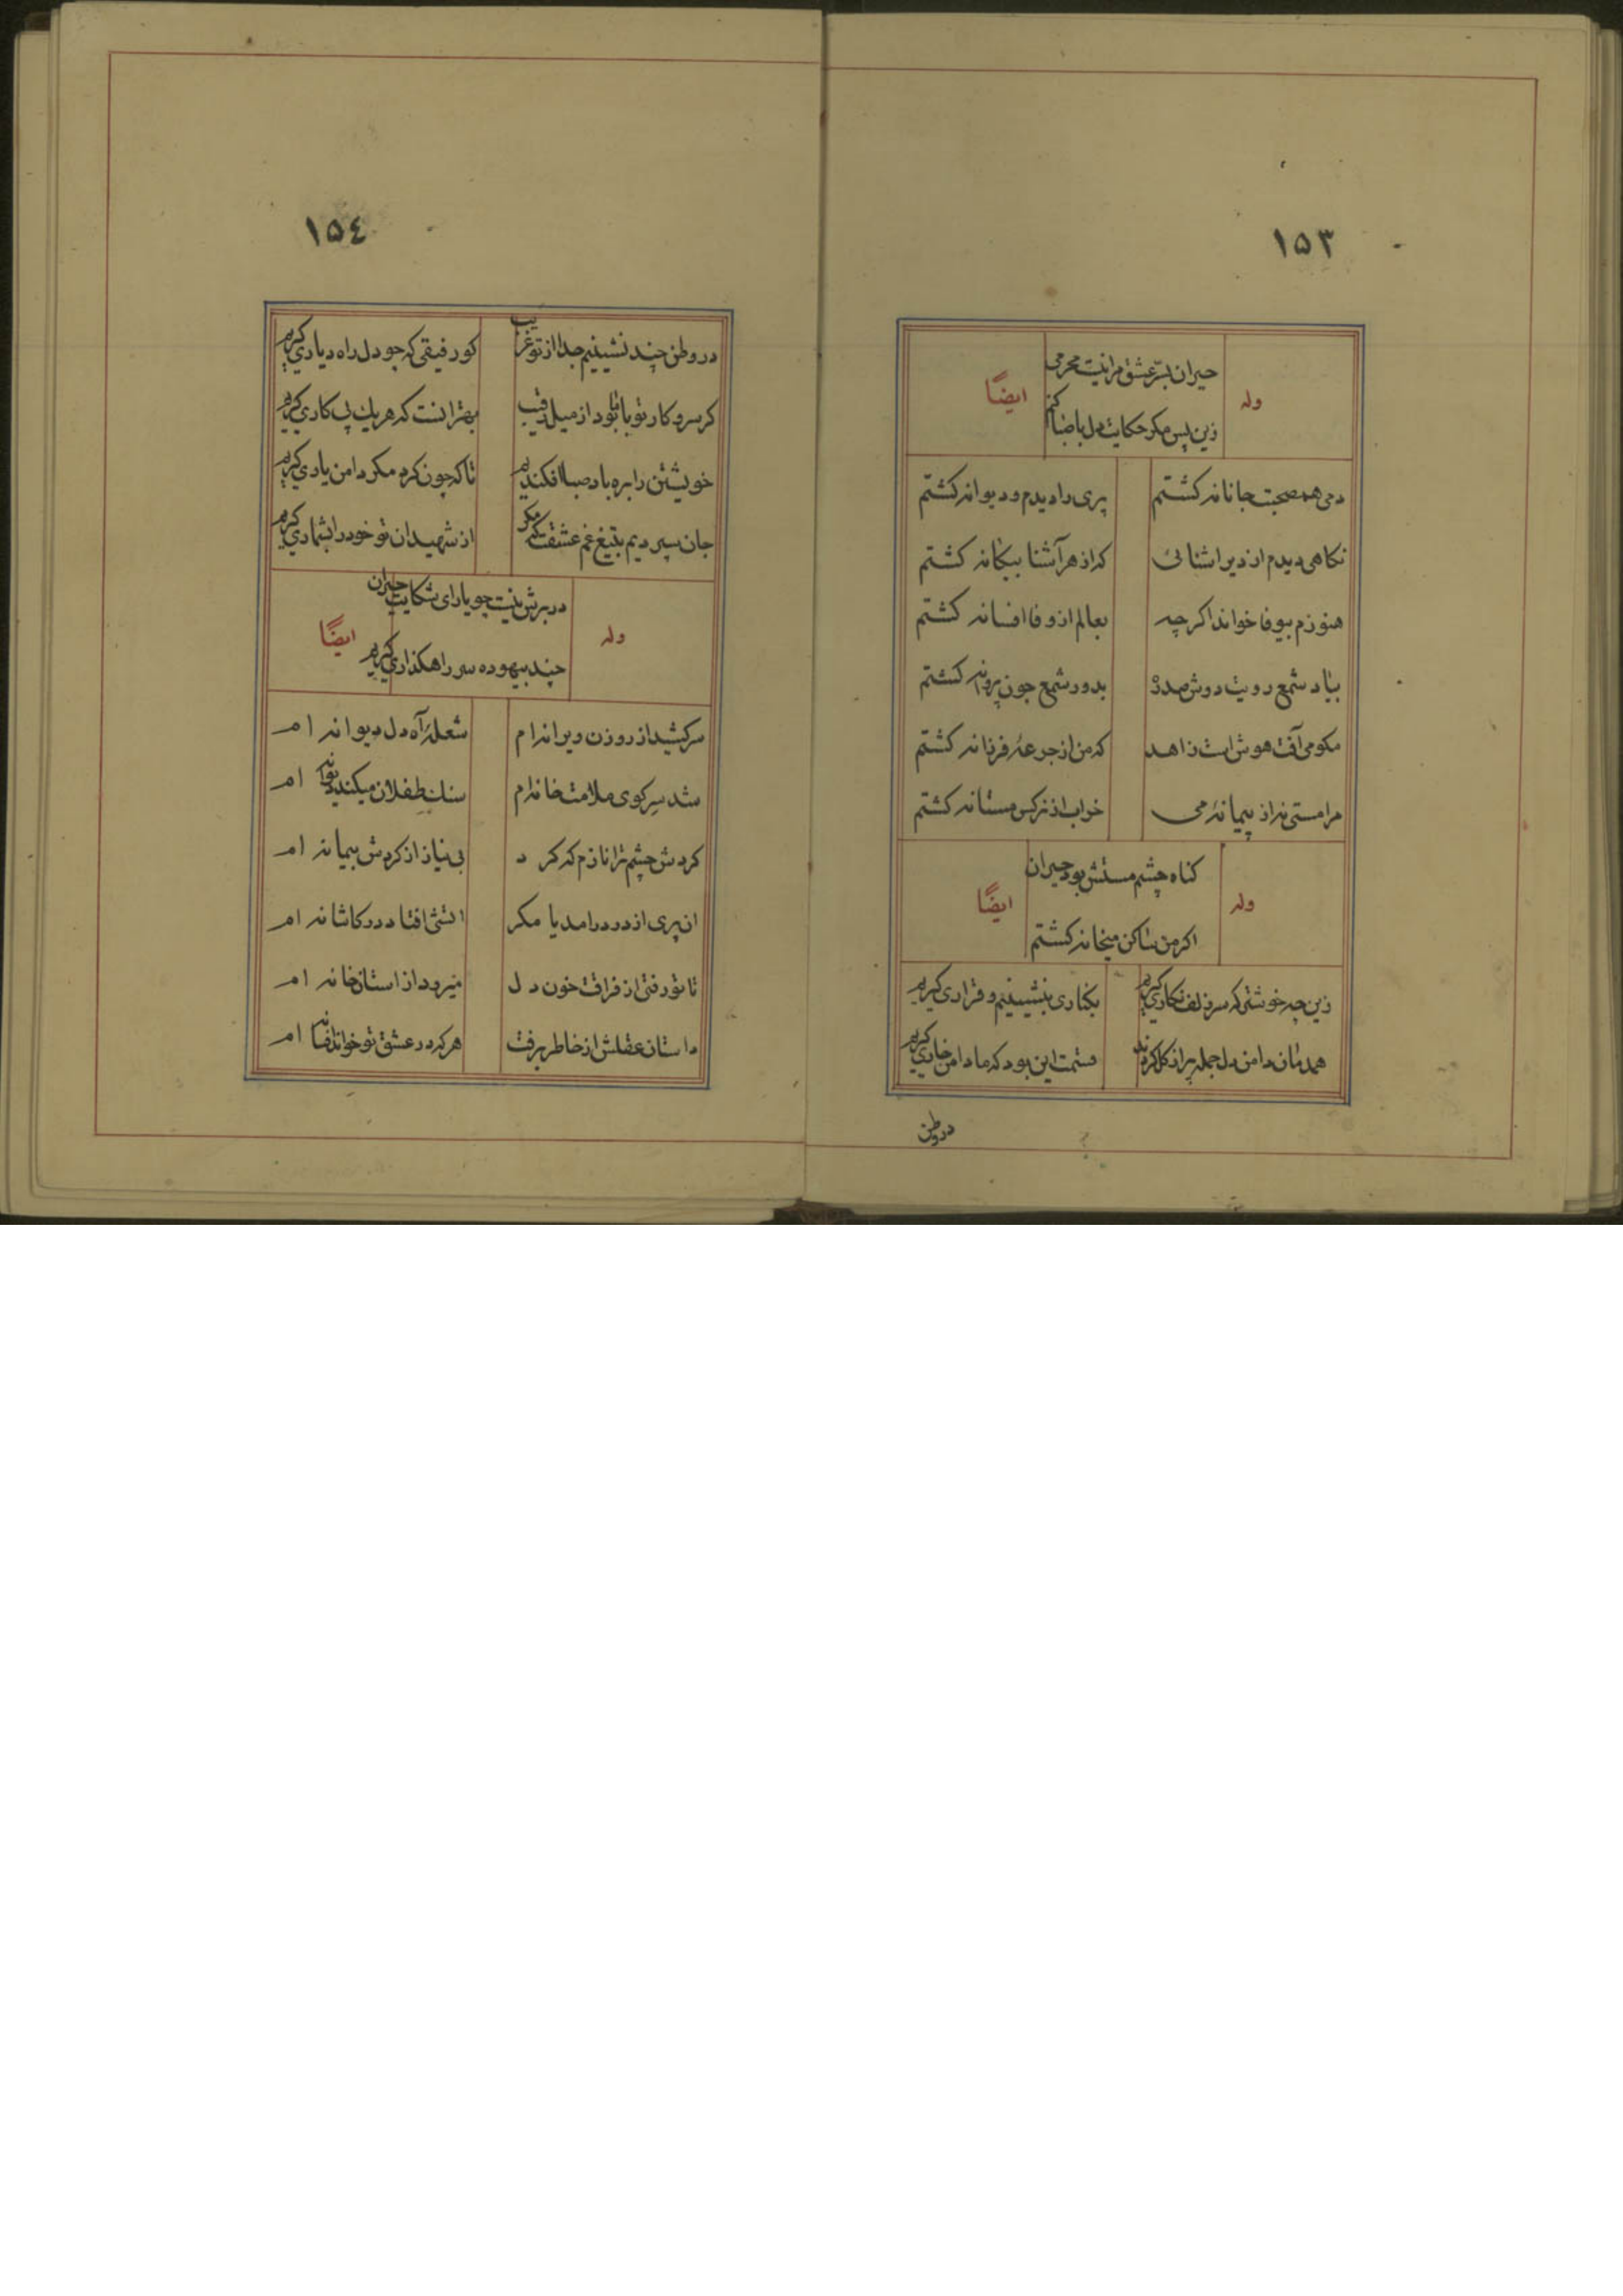 ١٥٣
وله
حیران بسرّ عشق مرا نیست محرمی
ایضًا
زین پس مکر حکایت دل با صبا کنم
دمی همصحبت جانانه کشتم پری را دیدم و دیوانه کشتم
نکاهی دیدم از دیر اشنائی که از هر آشنا بیکانه کشتم
هنوزم بیوفا خواند اکر چه بعالم از وفا افسانه کشتم
بیاد شمع رویت دوش صد ره بدور شمع چون پروانه کشتم
مکو می آفت هوش است زاهد که من از جرعهٔ فرزانه کشتم
مرا مستی نه از پیمانهٔ می خراب از نرکس مستانه کشتم
وله
کناه چشم مستش بود حیران
ایضًا
اکر من ساکن میخانه کشتم
زین چه خوشتر که سر زلف نکاری کیریم بکناری بنشینیم و قراری کیریم
همدمان دامن دل جمله پر از کل کردند قسمت این بود که ما دامن خاری کیریم
در وطن
١٥٤
در وطن چند نشینیم جدا از تو غریب کو رفیقی که چو دل راه دیاری کیریم
کر سر و کار تو با ما بود از میل رقیب بهتر انست که هر یک پی کاری کیریم
خویشتن را بره باد صبا افکندیم تا که چون کرد مکر دامن یاری کیریم
جان سپردیم بتیغ غم عشقت که مکر از شهیدان تو خود را بشماری کیریم
وله
در برش نیست چو یارای شکایت حیران
ایضًا
چند بیهوده سر راهکذاری کیریم
سر کشید از روزن ویرانه ام شعلهٔ آه دل دیوانه ام
شد سر کوی ملامت خانه ام سنک طفلان میکند دیوانه ام
کردش چشم ترا نازم که کرد بی نیاز از کردش پیمانه ام
ان پری از در درامد یا مکر اتشی افتاد در کاشانه ام
تا تو رفتی از فراقت خون دل میرود از استان خانه ام
داستان عقلش از خاطر برفت هر که در عشق تو خواند افسانه ام